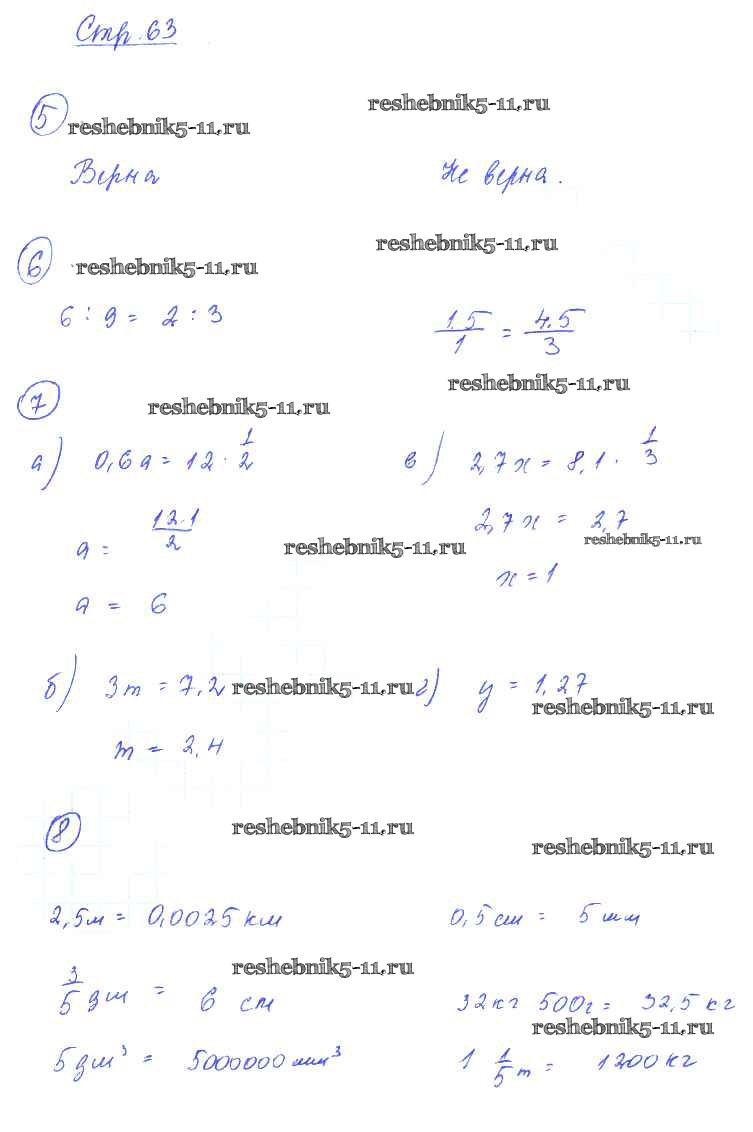 Стр. 63
5
reshebnik5-11.ru reshebnik5-11.ru
Верна Не верна.
6
reshebnik5-11.ru reshebnik5-11.ru
6 : 9 = 2 : 3 1.5/1 = 4.5/3
7
reshebnik5-11.ru reshebnik5-11.ru
а) 0,6a = 12 · 1/2 в) 2,7x = 8,1 · 1/3
a = 12·1/2 reshebnik5-11.ru 2,7x = 2,7 reshebnik5-11.ru
a = 6 x = 1
б) 3m = 7,2 reshebnik5-11.ru г) y = 1,27
reshebnik5-11.ru
m = 2,4
8
reshebnik5-11.ru reshebnik5-11.ru
2,5м = 0,0025 км 0,5см = 5мм
reshebnik5-11.ru
3/5 дм = 6 см 32кг 500г = 32,5 кг
reshebnik5-11.ru
5дм³ = 5000000мм³ 1 1/5 т = 1200кг